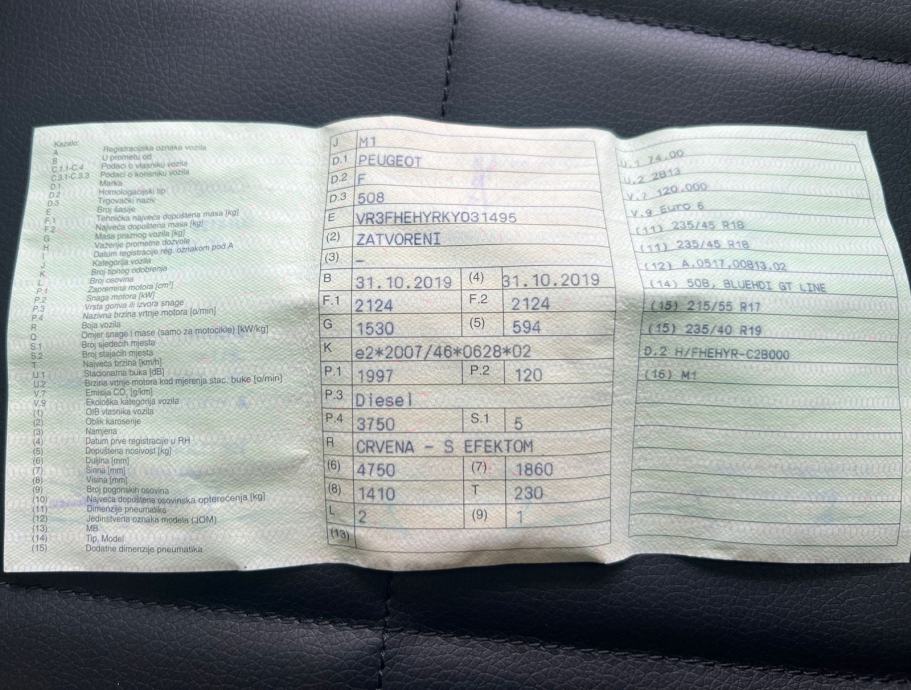 Kazalo:
A Registracijska oznaka vozila
B U prometu od
C.1.1-C.4 Podaci o vlasniku vozila
C.3.1-C.3.3 Podaci o korisniku vozila
D.1 Marka
D.2 Homologacijski tip
D.3 Trgovački naziv
E Broj šasije
F.1 Tehnička najveća dopuštena masa [kg]
F.2 Najveća dopuštena masa [kg]
G Masa praznog vozila [kg]
H Važenje prometne dozvole
I Datum registracije reg. oznakom pod A
J Kategorija vozila
K Broj tipnog odobrenja
L Broj osovina
P.1 Zapremina motora [cm³]
P.2 Snaga motora [kW]
P.3 Vrsta goriva ili izvora snage
P.4 Nazivna brzina vrtnje motora [o/min]
R Boja vozila
Q Omjer snage i mase (samo za motocikle) [kW/kg]
S.1 Broj sjedećih mjesta
S.2 Broj stajaćih mjesta
T Najveća brzina [km/h]
U.1 Stacionarna buka [dB]
U.2 Brzina vrtnje motora kod mjerenja stac. buke [o/min]
V.7 Emisija CO₂ [g/km]
V.9 Ekološka kategorija vozila
(1) OIB vlasnika vozila
(2) Oblik karoserije
(3) Namjena
(4) Datum prve registracije u RH
(5) Dopuštena nosivost [kg]
(6) Duljina [mm]
(7) Širina [mm]
(8) Visina [mm]
(9) Broj pogonskih osovina
(10) Najveća dopuštena osovinska opterećenja [kg]
(11) Dimenzije pneumatika
(12) Jedinstvena oznaka modela (JOM)
(13) MB
(14) Tip, Model
(15) Dodatne dimenzije pneumatika
J M1
D.1 PEUGEOT
D.2 F
D.3 508
E VR3FHEHYRKY031495
(2) ZATVORENI
(3) –
B 31.10.2019 (4) 31.10.2019
F.1 2124 F.2 2124
G 1530 (5) 594
K e2*2007/46*0628*02
P.1 1997 P.2 120
P.3 Diesel
P.4 3750 S.1 5
R CRVENA - S EFEKTOM
(6) 4750 (7) 1860
(8) 1410 T 230
L 2 (9) 1
(13)
U.1 74.00
U.2 2813
V.7 120.000
V.9 Euro 6
(11) 235/45 R18
(11) 235/45 R18
(12) A.0517.00813.02
(14) 508, BLUEHDI GT LINE
(15) 215/55 R17
(15) 235/40 R19
D.2 H/FHEHYR-C2B000
(16) M1